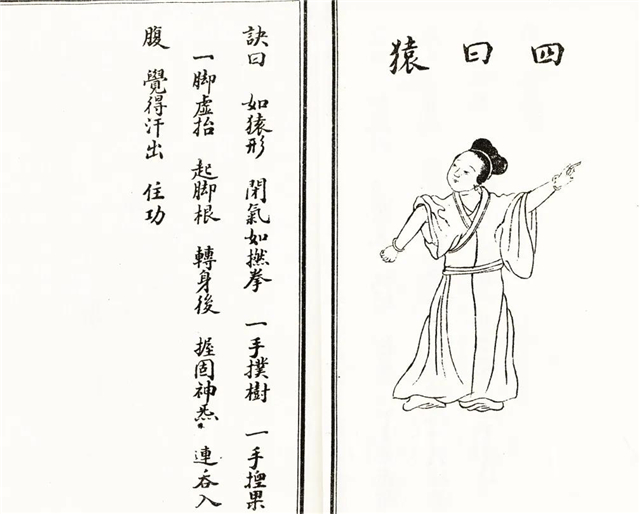 四曰猿
訣曰 如猿形 閉氣如撚拳 一手撲樹 一手揑果
一脚虛抬 起脚根 轉身後 握固神炁 連吞入
腹 覺得汗出 住功